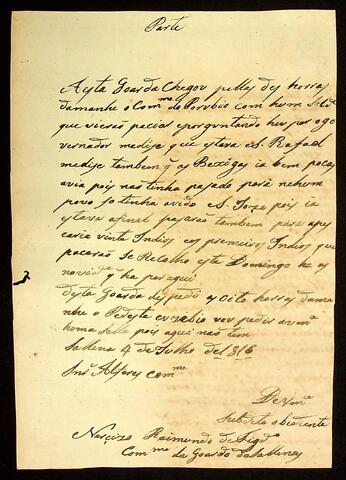 Parte
Aesta Goarda Chegou pellas des horras
damanhe o Comm.e de Perubio com hum Solda.
que vierão paciar eporguntando heu por ogo
vernador medise que estava eS. Rafael
medise tambem q os Bexigas ia bem pocas
avia pois nas tinha pasado pará nehum
povo so tinha avido eS. Jorze pois ia
estava afinal pasarão tambem para apes
caria vinte Indios eos premeiros Indios que
pacarão se Recolho este Domingo he as
novid.es q ha por aqui
desta Goarda despedi as oito horras dama
nhe o Pedeste eusebio vou pedir avm.ce
huma Selle pois aqui não tem
Sallena 4 de Julho de 1816
Snr. Alferes comm.e
De vm.ce
Subdito obediente
Narcizo Raimundo de Figd.o
Com.me da Goarda da Sallenas